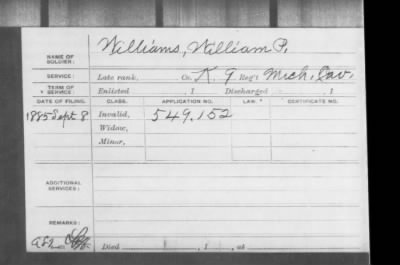 NAME OF SOLDIER: Williams, William P.
SERVICE: Late rank, Co. K. 9 Reg't Mich. Cav.
TERM OF SERVICE: Enlisted , 1 Discharged , 1
DATE OF FILING. CLASS. APPLICATION NO. LAW. CERTIFICATE NO.
1885 Sept. 8 Invalid, 549.152
Widow,
Minor,
ADDITIONAL SERVICES:
REMARKS:
Died , 1 , at